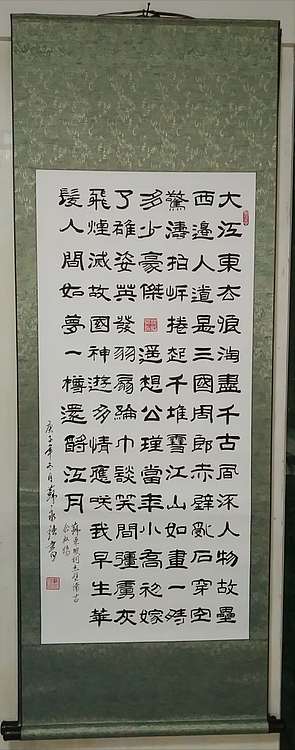 大江東去浪淘盡千古風流人物故壘
西邊人道是三國周郎赤壁亂石穿空
驚濤拍岸捲起千堆雪江山如畫一時
多少豪傑 遥想公瑾當年小喬初嫁
了雄姿英發羽扇綸巾談笑間彊虜灰
飛煙滅故國神遊多情應咲我早生華
髮人間如夢一樽還酹江月
蘇東坡詞赤壁懷古
庚子年六月蘇永書